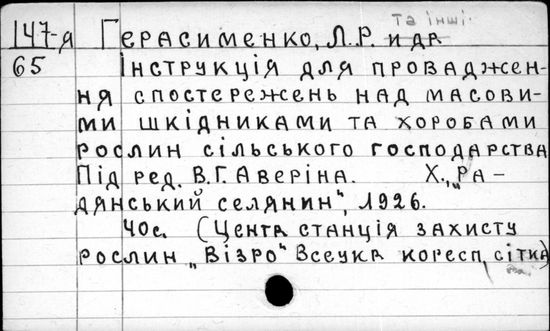 та інші.
147-я Герасименко, Л.Р. и др
65 Інструкція для провaджен-
ня спостережень над масови-
ми шкідниками та хоробами
рослин сільського господарства
Під ред. В.Г. Аверіна. Х., „Ра-
дянський селянин", 1926.
40с. (Центр. станція захисту
рослин „Візро" Всеукр. коресп. сітка)